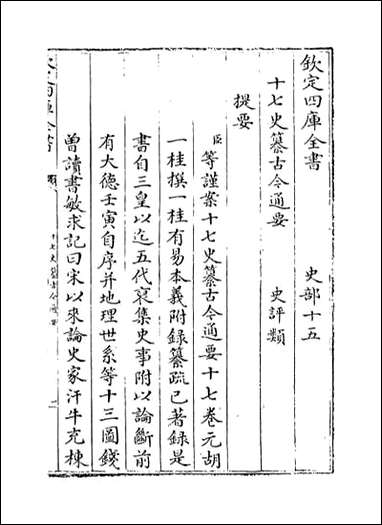 欽定四庫全書　　　　史部十五
十七史纂古今通要　　史評類
提要
臣等謹案十七史纂古今通要十七卷元胡
一桂撰一桂有易本義附録纂疏已著録是
書自三皇以迄五代裒集史事附以論斷前
有大德壬寅自序并地理世系等十三圖錢
曾讀書敏求記曰宋以來論史家汗牛充棟
十七史纂古今通要